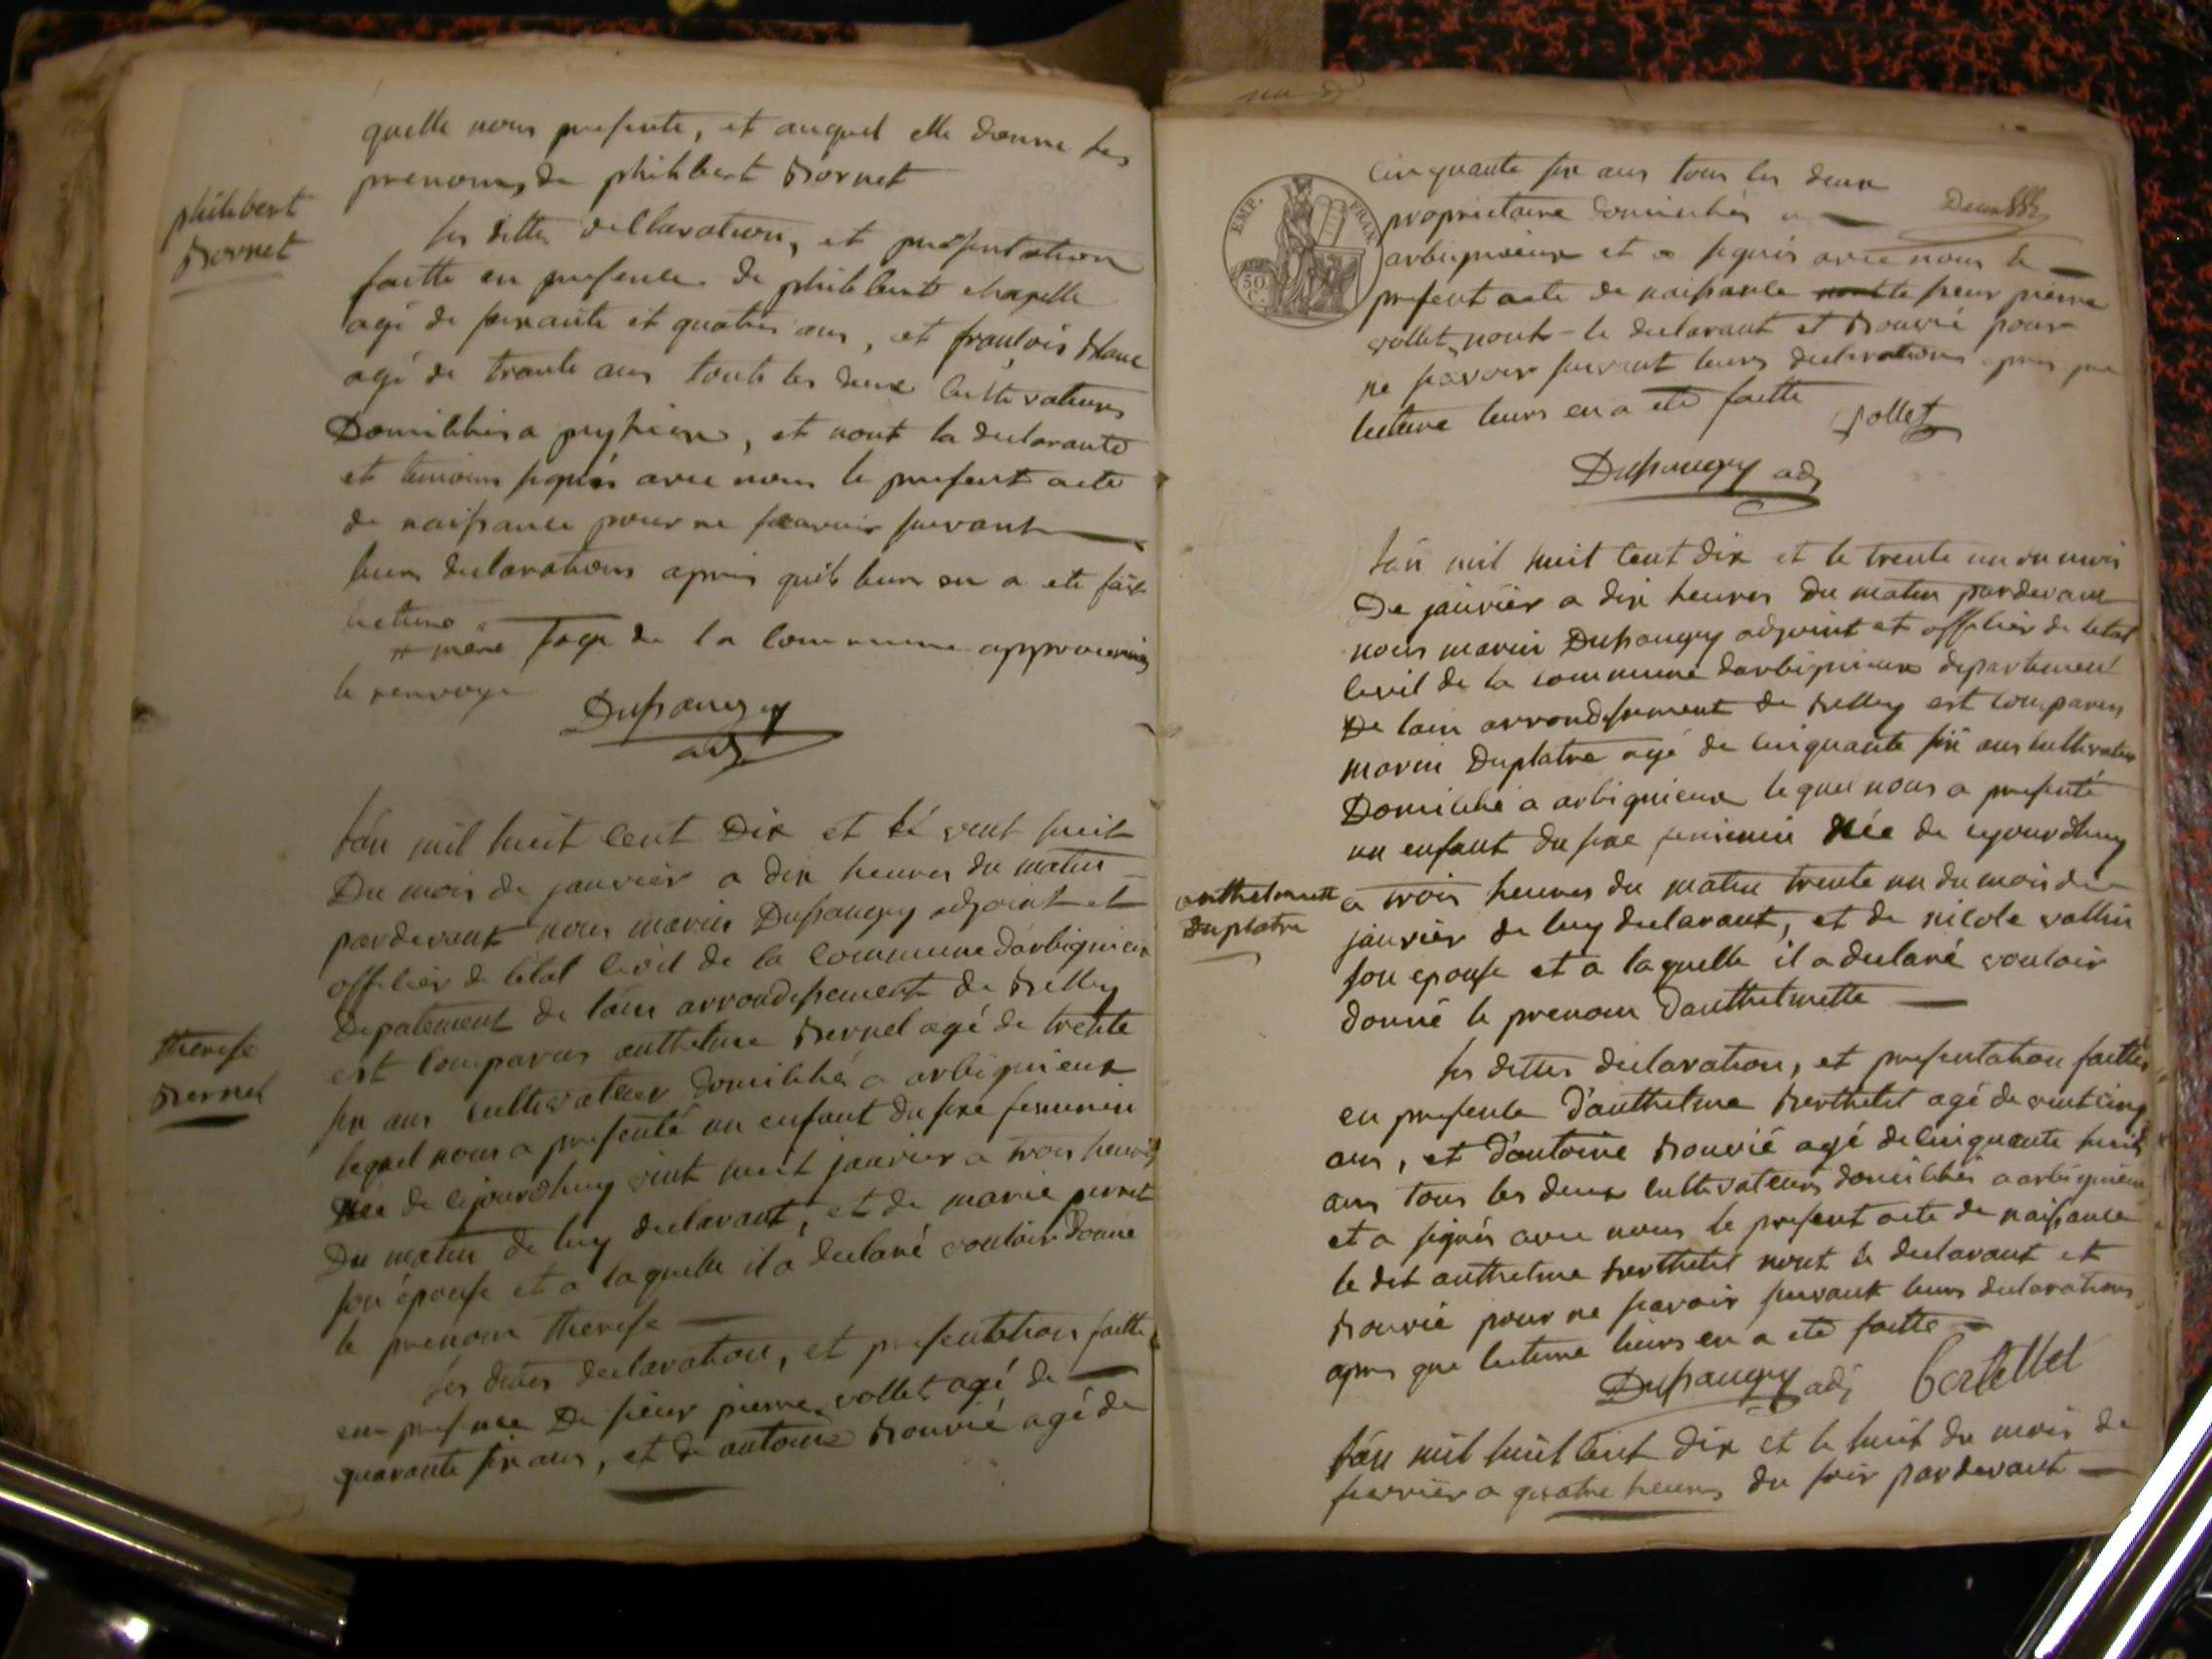 quelle nous presente, et auquel elle donne les
prenoms de philibert Bornet
philibert
Bornet
les dittes declaration, et presentation
faitte en presence de philibert chapelle
agé de soixante et quatres ans, et françois blanc
agé de trante ans touts les deux cultivateurs
Domicilies a peyzieu, et nont la declarante
et temoins signés avec nous le present acte
de naissance pour ne scavoir suivant
leurs declarations apres quils leurs en a ete fait
lecture
meme page de la commune approuvons
le renvoye
Dupaugey
adj
lan mil huit cent Dix et le vent huit
Du mois de janvier a dix heures du matin
pardevant nous marin Dupaugey adjoint et
officier de letat civil de la commune darbignieu
Depatement de lain arrondissement de Belley
therese
Bernel
est comparus anthelme Bernel agé de trente
six ans cultivateur domicilié a arbignieux
lequel nous a presenté un enfant du sexe feminin
Née de cejourdhuy vint huit janvier a trois heures
Du matin de luy declarant, et de marie pernet
son épouse et a laquelle il a declaré vouloir donné
le prenom therese
les dittes declaration, et presentation faitte
en presence De sieur pierre vollet agé de
quarante six ans, et de antoine Bouvié agé de
EMP. FRAN.
50
C.
cinquante six ans tous les deux
proprietaire domiciliés a
arbignieux et a signés avec nous le
present acte de naissance le sieur pierre
vollet, nont le declarant et Bouvié pour
ne scavoir suivant leurs declarations apres que
lecture leurs en a ete faitte
vollet
Dupaugey adj
lan mil huit cent dix et le trente un du mois
De janvier a dix heures du matin pardevant
nous marin Dupaugey adjoint et officier de letat
civil de la commune darbignieux departement
De lain arrondissement de Belley est comparus
marin Duplatre agé de cinquante six ans cultivateur
Domicilié a arbignieux lequel nous a presenté
un enfant du sexe feminin Née de cejourdhuy
anthelmette
Duplatre
a trois heures du matin trente un du mois de
janvier de luy declarant, et de nicole vallin
son epouse et a laquelle il a declaré vouloir
donné le prenom Danthelmette
les dittes declaration, et presentation faittes
en presence d'anthelme Berthelet agé de vint cinq
ans, et d'antoine Bouvié agé de cinquante huit
ans tous les deux cultivateurs domiciliés a arbignieu
et a signés avec nous le present acte de naissance
le dit anthelme Berthelet nont le declarant et
Bouvié pour ne scavoir suivant leurs declarations
apres que lecture leurs en a ete faitte
Dupaugey adj bertellet
lan mil huit cent dix et le huit du mois de
fevrier a quatre heures du soir pardevant